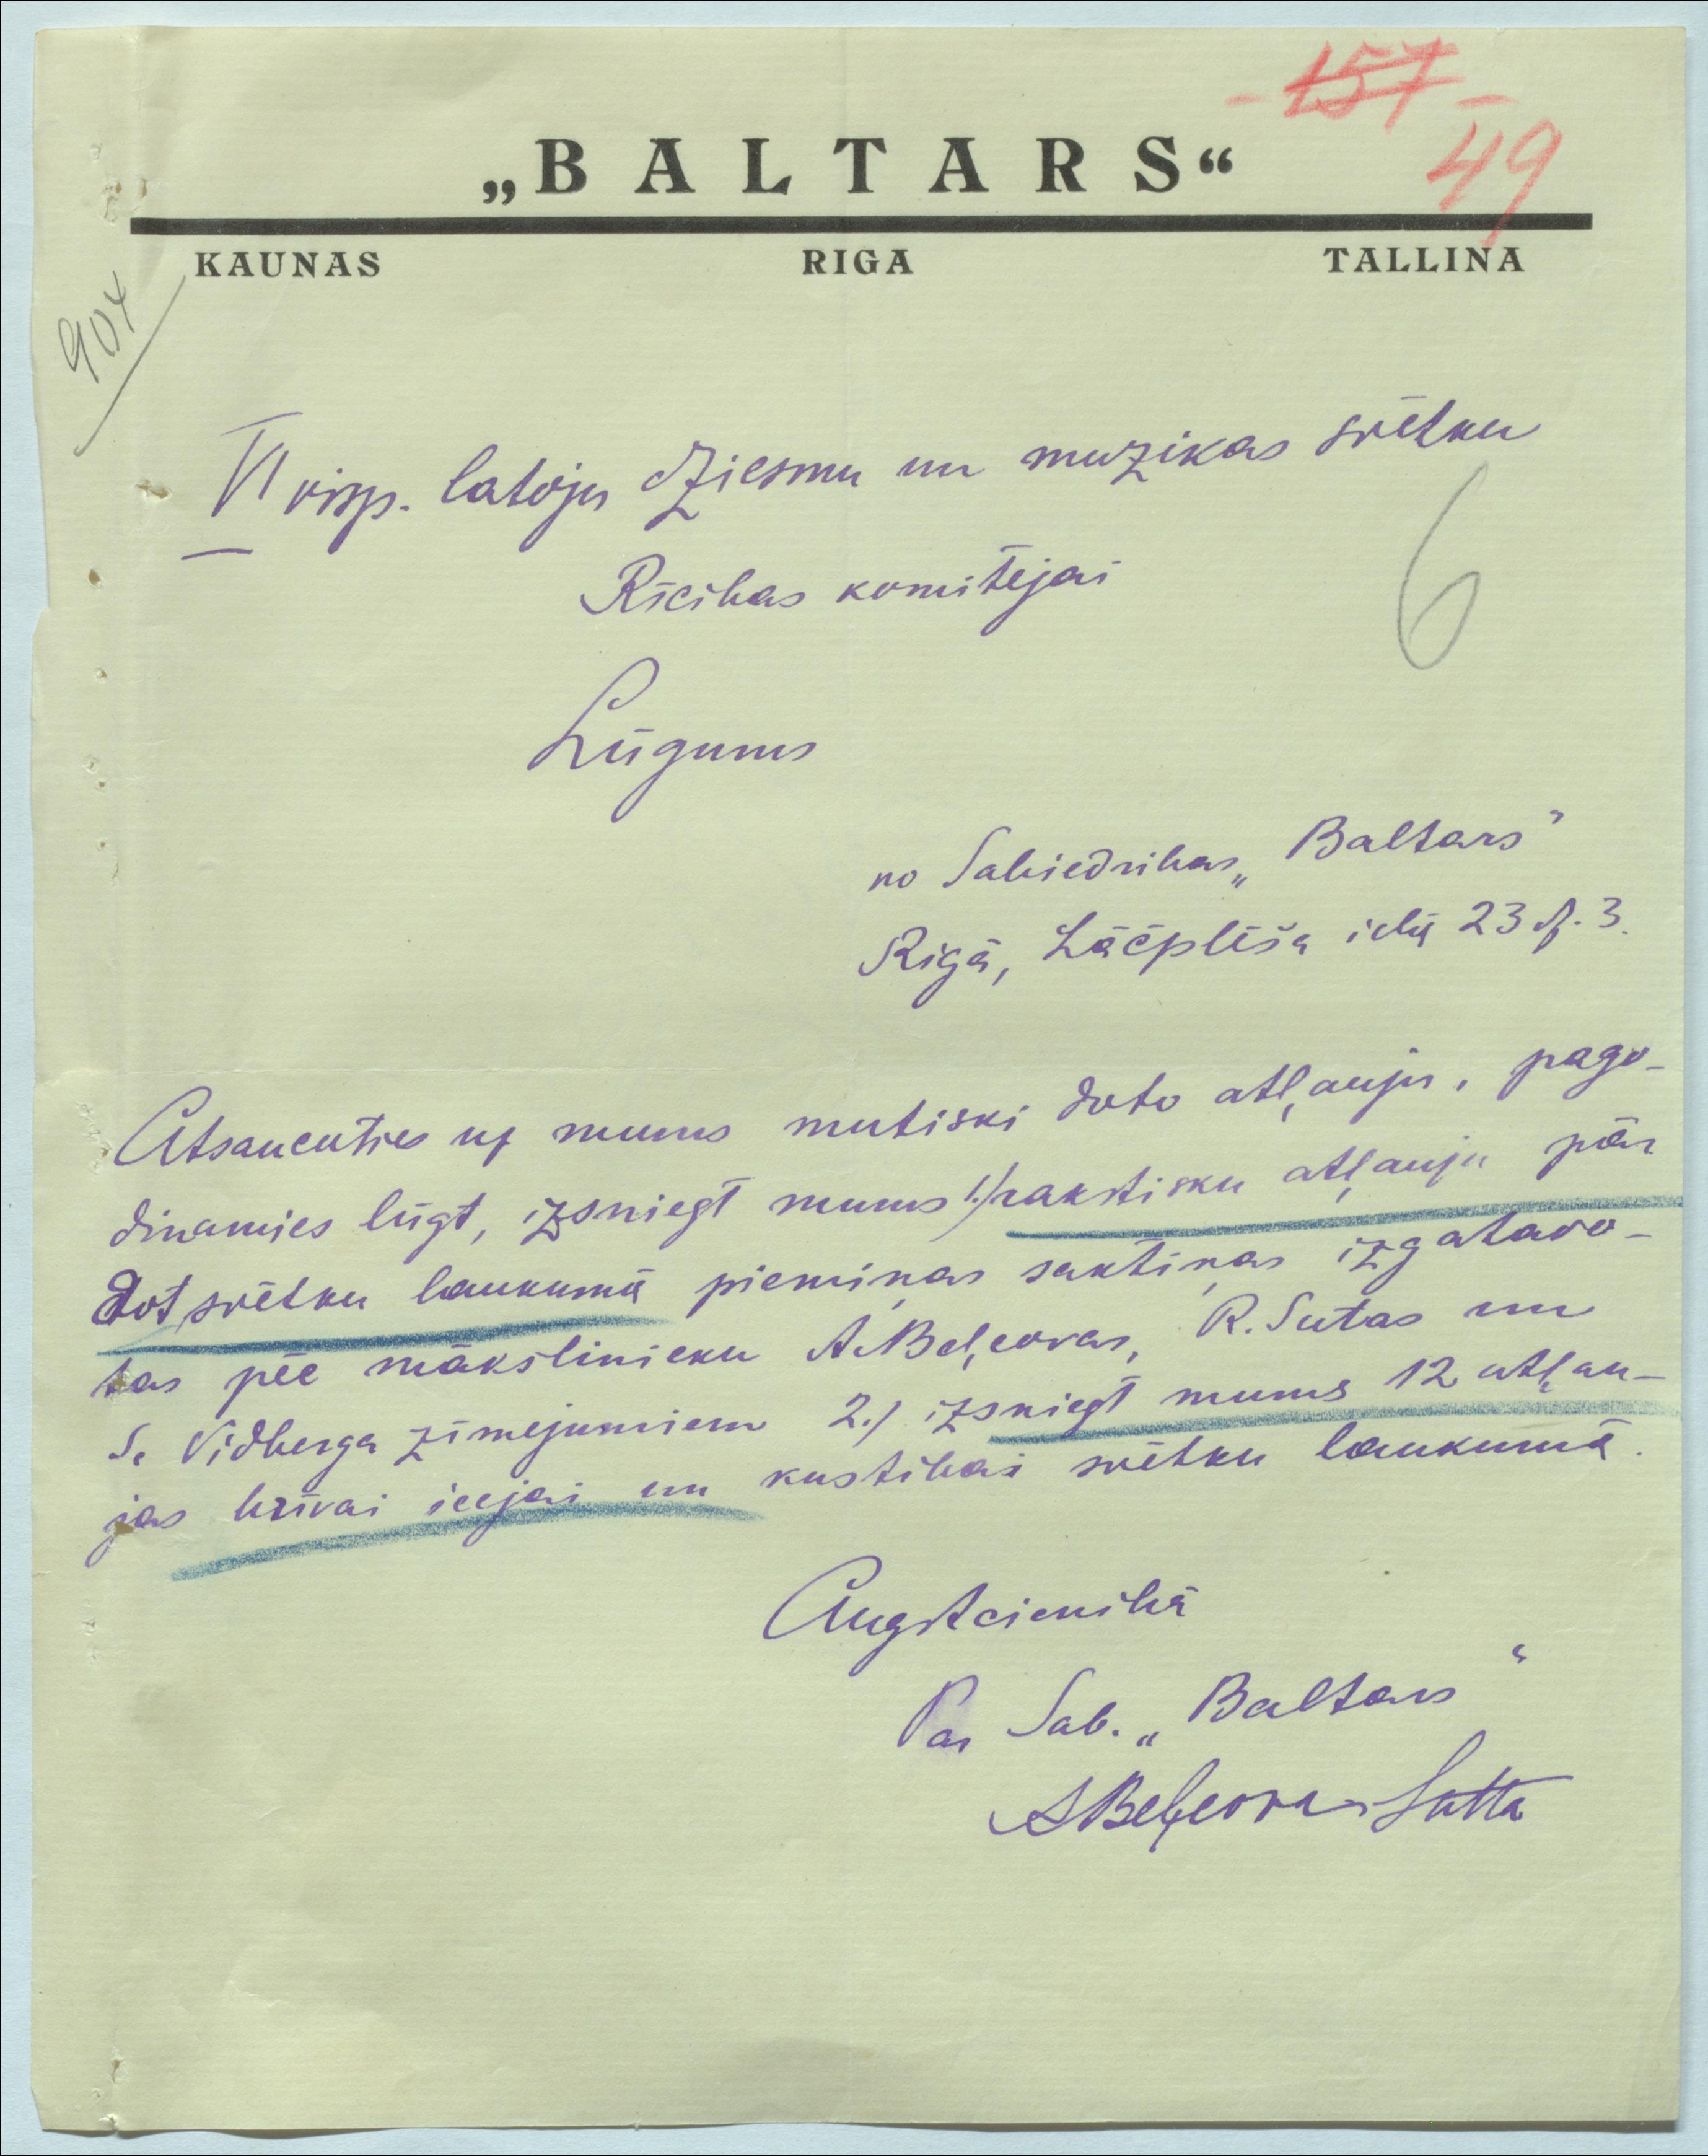 - 157 -
49
„BALTARS“
KAUNAS RIGA TALLINA
904
VI visp. latvju dziesmu un muzikas svētku
6
Rīcibas komitejai
Lūgums
no Sabiedribas „Baltars”
Rigā, Lāčplēša ielā 23 dz. 3.
Atsaucoties uz mums mutiski doto atļauju, pago-
dinamies lūgt, izsniegt mums 1./ rakstisku atļauju pār
dot svētku laukumā piemiņas saktiņas izgatavo-
tas pēc mākslinieku A. Beļcovas, R. Sutas un
S. Vidberga zīmejumiem 2./ izsniegt mums 12 atļau-
jas brīvai ieejai un kustibai svētku laukumā.
Augstcienibā
Par Sab. „Baltars“
A Beļcova-Sutta